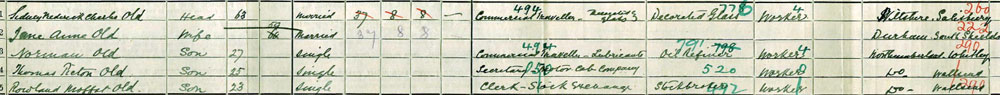 Sidney Frederick Charles Old Head 63 Married 37 8 8 — Commercial Traveller - Decorated Glass Worker Wiltshire Salisbury
2 Jane Anne Old Wife Married 37 8 8 Durham South Shields
3 Norman Old Son 27 Single Commercial Traveller - Lubricants Oil Refiner Worker Northumberland Whitley
4 Thomas Picton Old Son 25 Single Secretary Motor Cab Company 520 Worker Do Wallsend
5 Rowland Moffet Old Son 23 Single Clerk - Stock Exchange Stockbroker Worker Do Wallsend